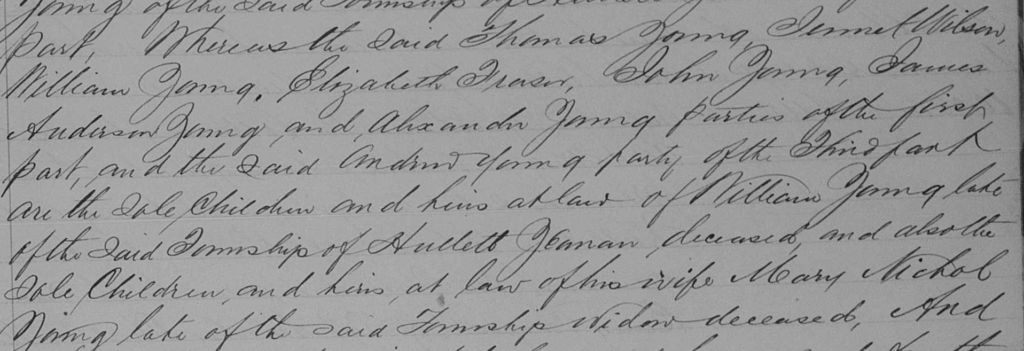 Young of the said Township of
part, Whereas the said Thomas Young, Jennet Wilson,
William Young, Elizabeth Fraser, John Young, James
Anderson Young, and, Alexander Young parties of the first
part, and the said Andrew Young party of the Third part
are the Sole Children and heirs at law of William Young late
of the said Township of Hullett Yeoman, deceased, and also the
Sole Children, and heirs, at law of his wife Mary Nichol
Young late of the said Township Widow deceased, And